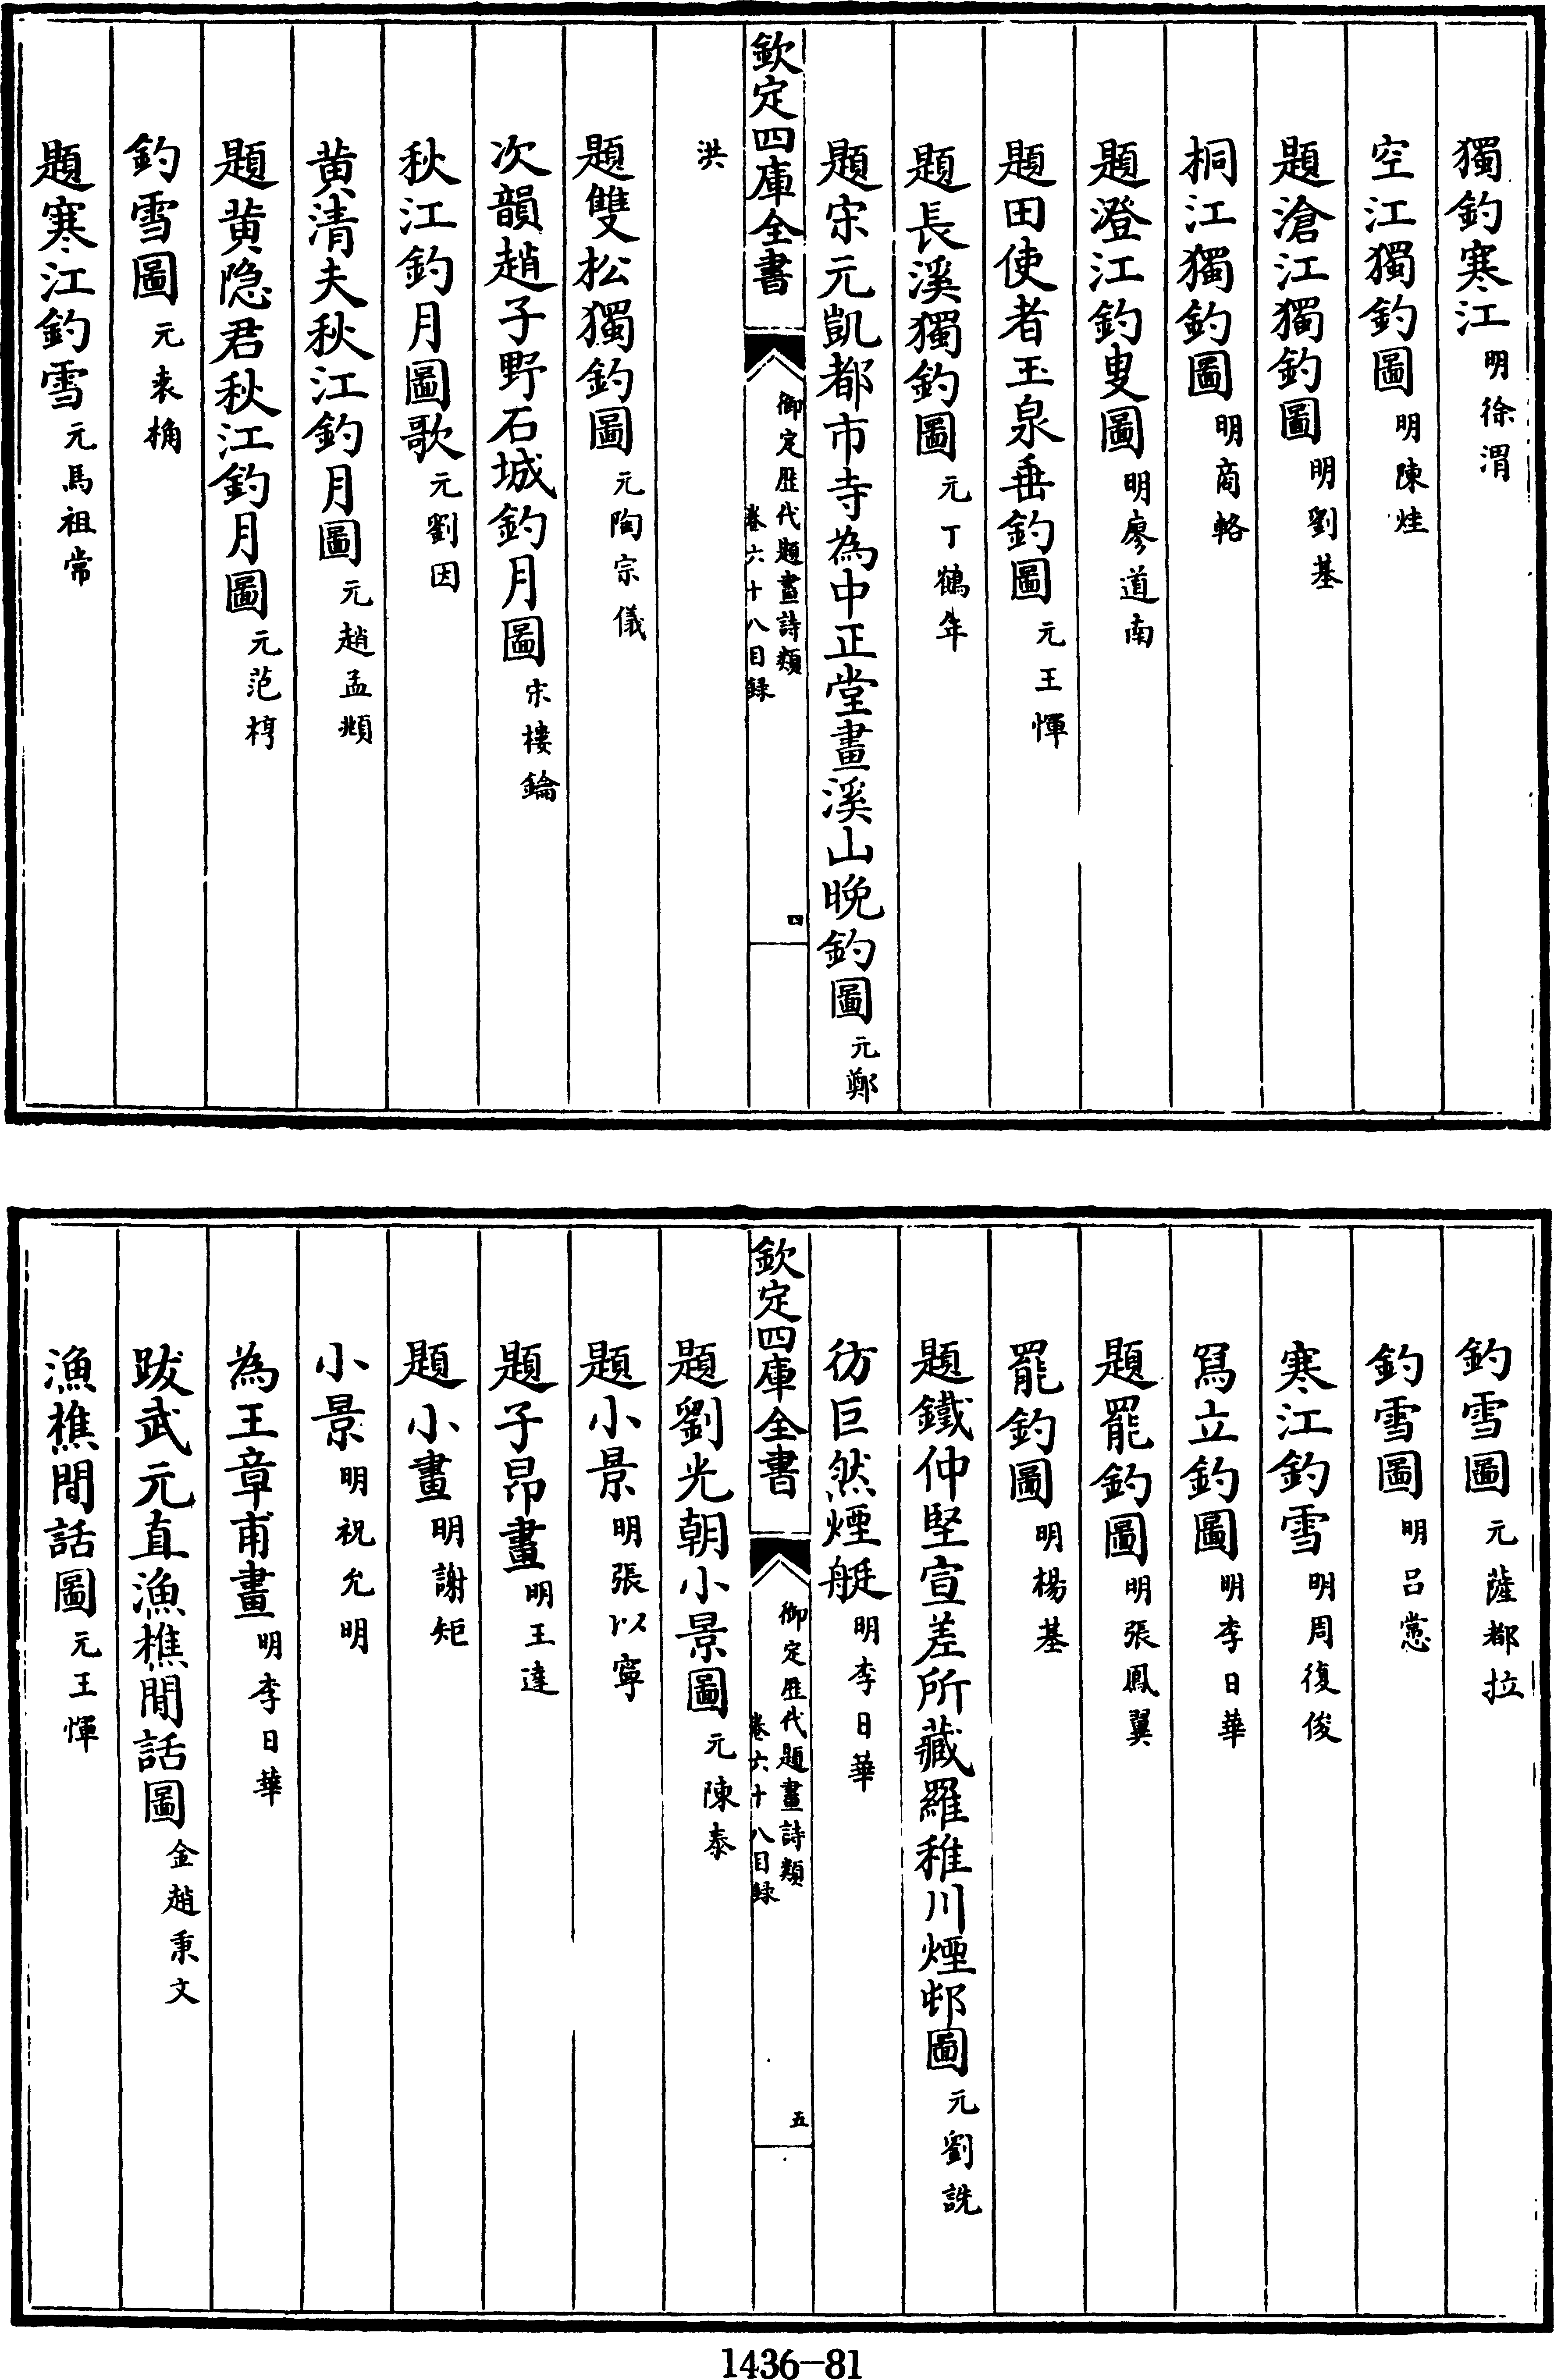 獨釣寒江 明徐渭
空江獨釣圖 明陳烓
題滄江獨釣圖 明劉基
桐江獨釣圖 明商輅
題澄江釣叟圖 明廖道南
題田使者玉泉垂釣圖 元王惲
題長溪獨釣圖 元丁鶴年
題宋元凱都市寺為中正堂畫溪山晚釣圖 元鄭
欽定四庫全書
御定歷代題畫詩類
卷六十八目録
四
洪
題雙松獨釣圖 元陶宗儀
次韻趙子野石城釣月圖 宋樓鑰
秋江釣月圖歌 元劉因
黄清夫秋江釣月圖 元趙孟頫
題黄隐君秋江釣月圖 元范梈
釣雪圖 元袁桷
題寒江釣雪 元馬祖常
釣雪圖 元薩都拉
釣雪圖 明吕㦂
寒江釣雪 明周復俊
冩立釣圖 明李日華
題罷釣圖 明張鳳翼
罷釣圖 明楊基
題鐵仲堅宣差所藏羅稚川煙邨圖 元劉詵
仿巨然煙艇 明李日華
欽定四庫全書
御定歷代題畫詩類
卷六十八目録
五
題劉光朝小景圖 元陳泰
題小景 明張以寧
題子昂畫 明王達
題小畫 明謝矩
小景 明祝允明
為王章甫畫 明李日華
跋武元直漁樵閒話圖 金趙秉文
漁樵閒話圖 元王惲
1436-81